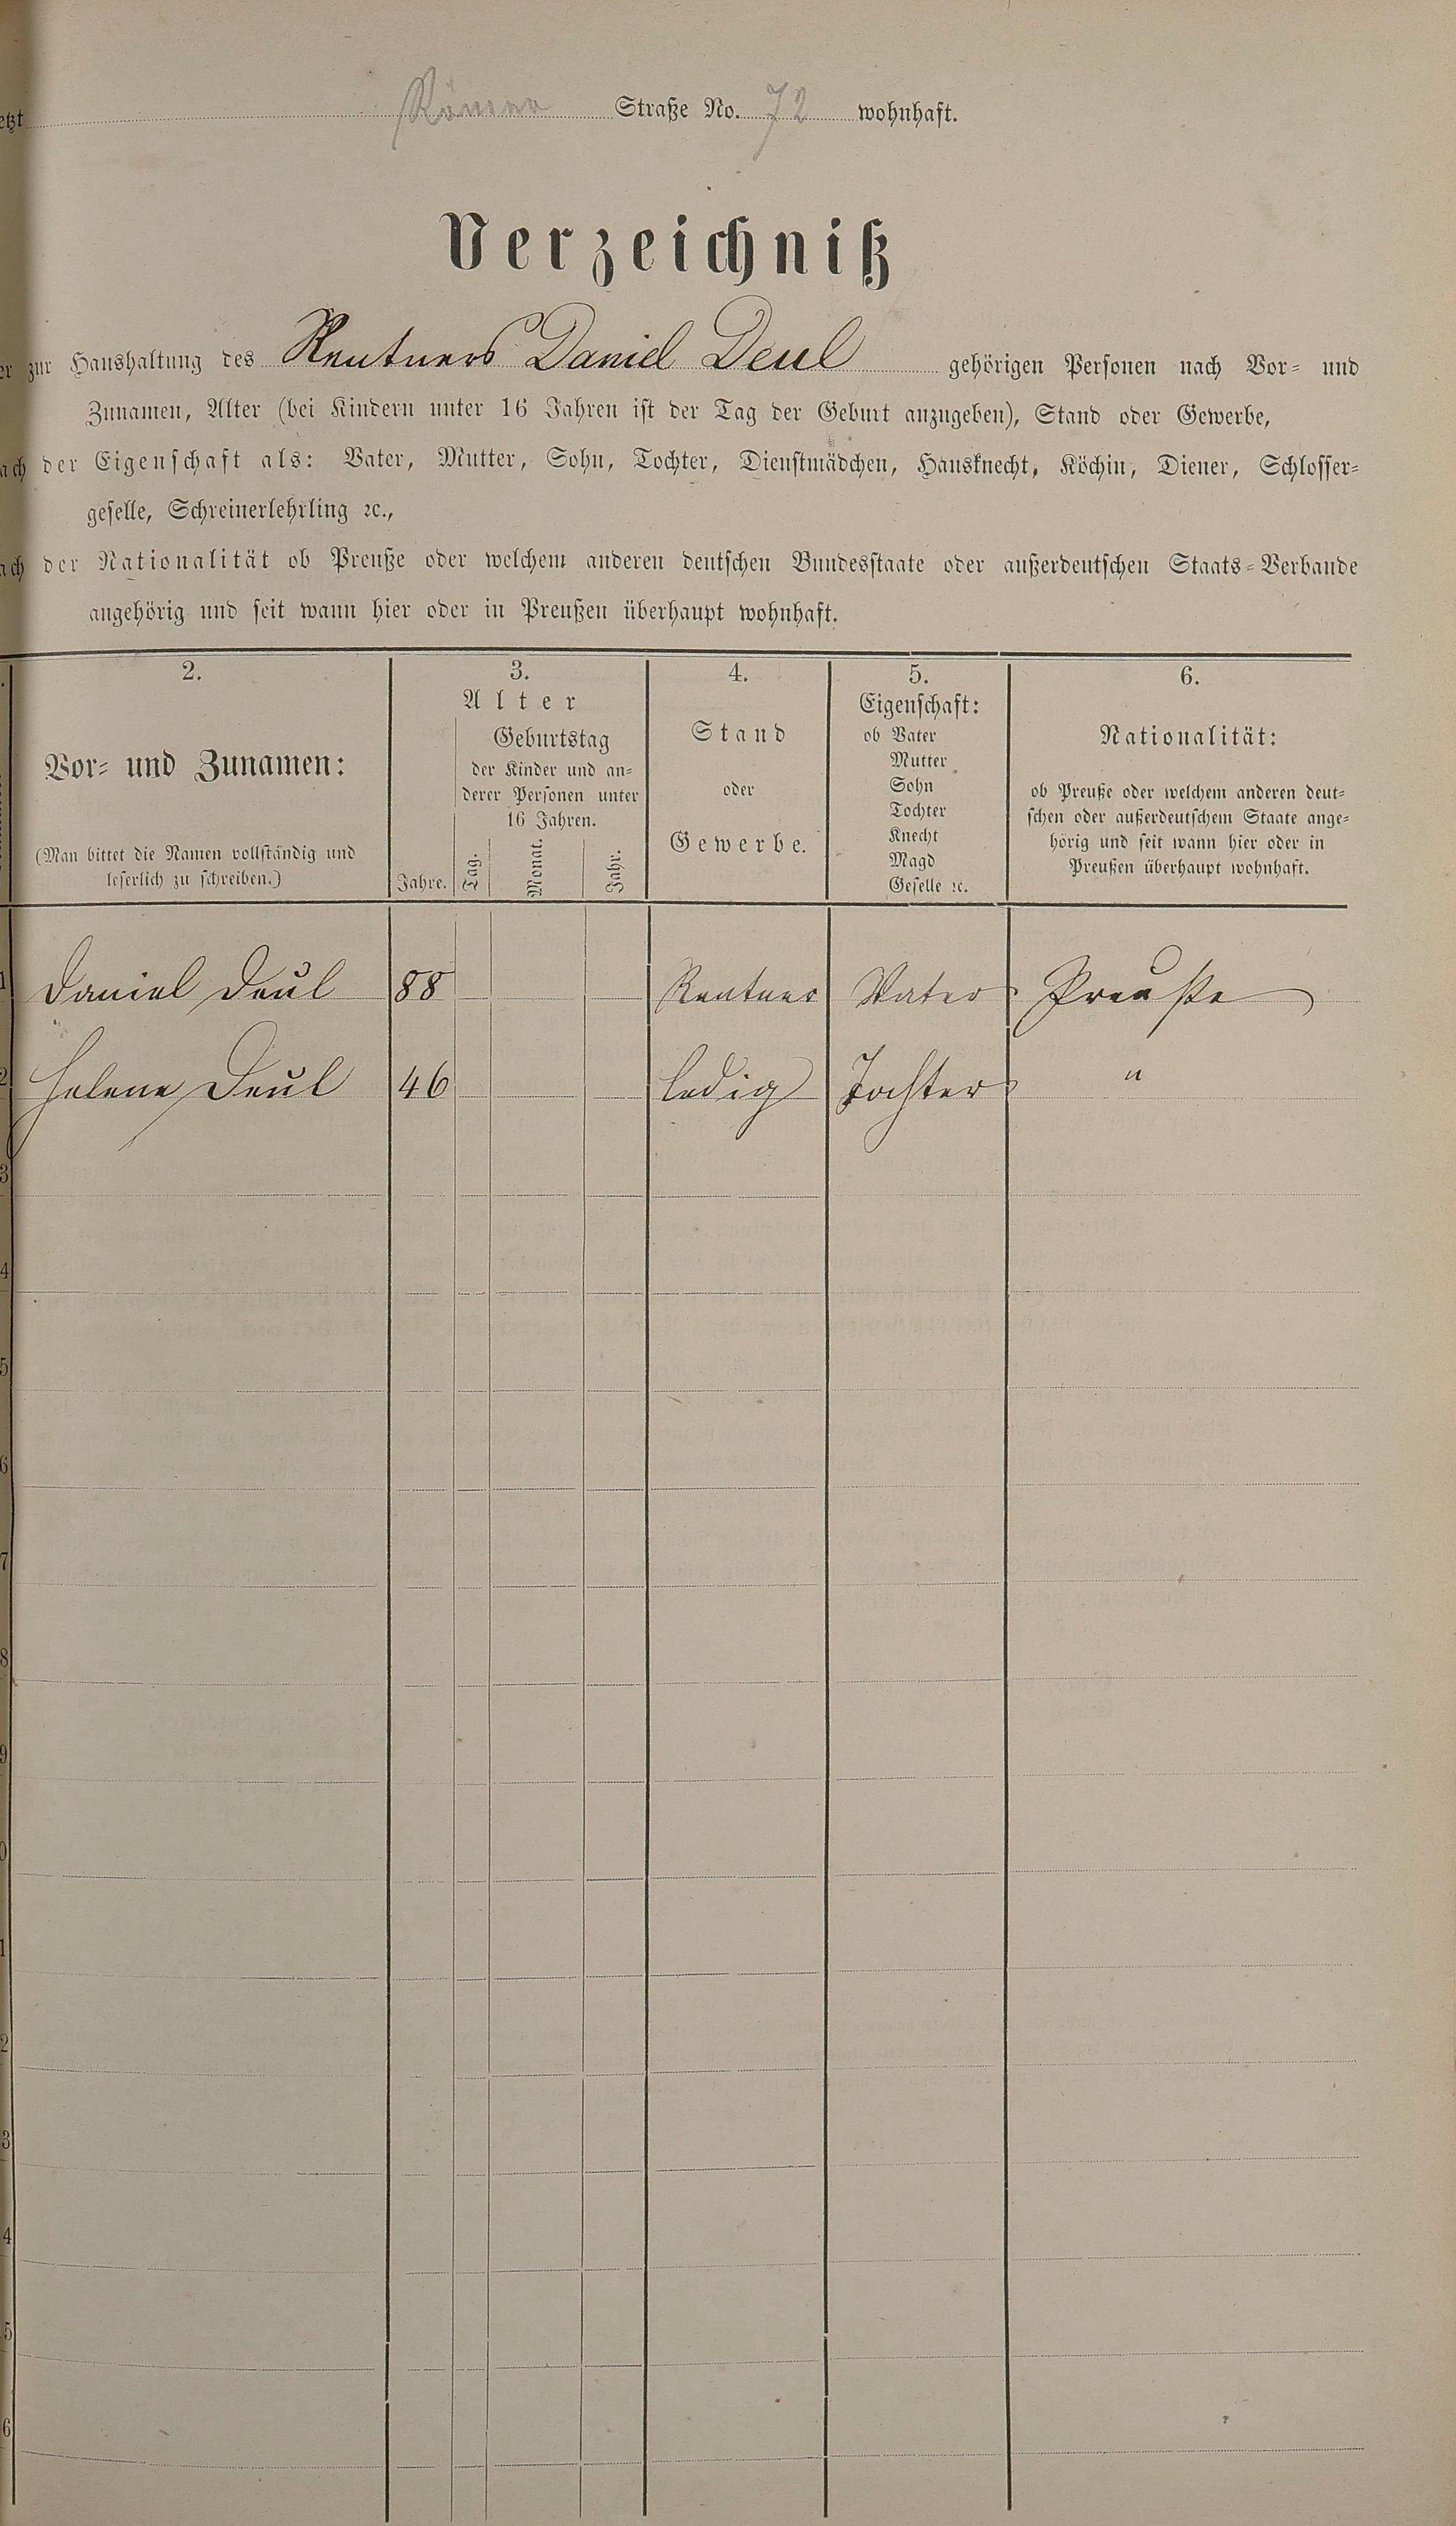 etzt Römer Straße No. 72 wohnhaft.
Verzeichniß
er zur Haushaltung des Rentners Daniel Deul gehörigen Personen nach Vor- und
Zunamen, Alter (bei Kindern unter 16 Jahren ist der Tag der Geburt anzugeben), Stand oder Gewerbe,
ach der Eigenschaft als: Vater, Mutter, Sohn, Tochter, Dienstmädchen, Hausknecht, Köchin, Diener, Schlosser-
geselle, Schreinerlehrling ꝛc.,
ach der Nationalität ob Preuße oder welchem anderen deutschen Bundesstaate oder außerdeutschen Staats-Verbande
angehörig und seit wann hier oder in Preußen überhaupt wohnhaft.
2.
Vor- und Zunamen:
(Man bittet die Namen vollständig und
leserlich zu schreiben.)
3.
Alter
Geburtstag
der Kinder und an-
derer Personen unter
16 Jahren.
Jahre. Tag. Monat. Jahr.
4.
Stand
oder
Gewerbe.
5.
Eigenschaft:
ob Vater
Mutter
Sohn
Tochter
Knecht
Magd
Geselle ꝛc.
6.
Nationalität:
ob Preuße oder welchem anderen deut-
schen oder außerdeutschem Staate ange-
hörig und seit wann hier oder in
Preußen überhaupt wohnhaft.
1 Daniel Deul 88 Rentner Vater Preuße
2 Helene Deul 46 ledig Tochter "
3
4
5
6
7
8
9
0
1
2
3
4
5
6